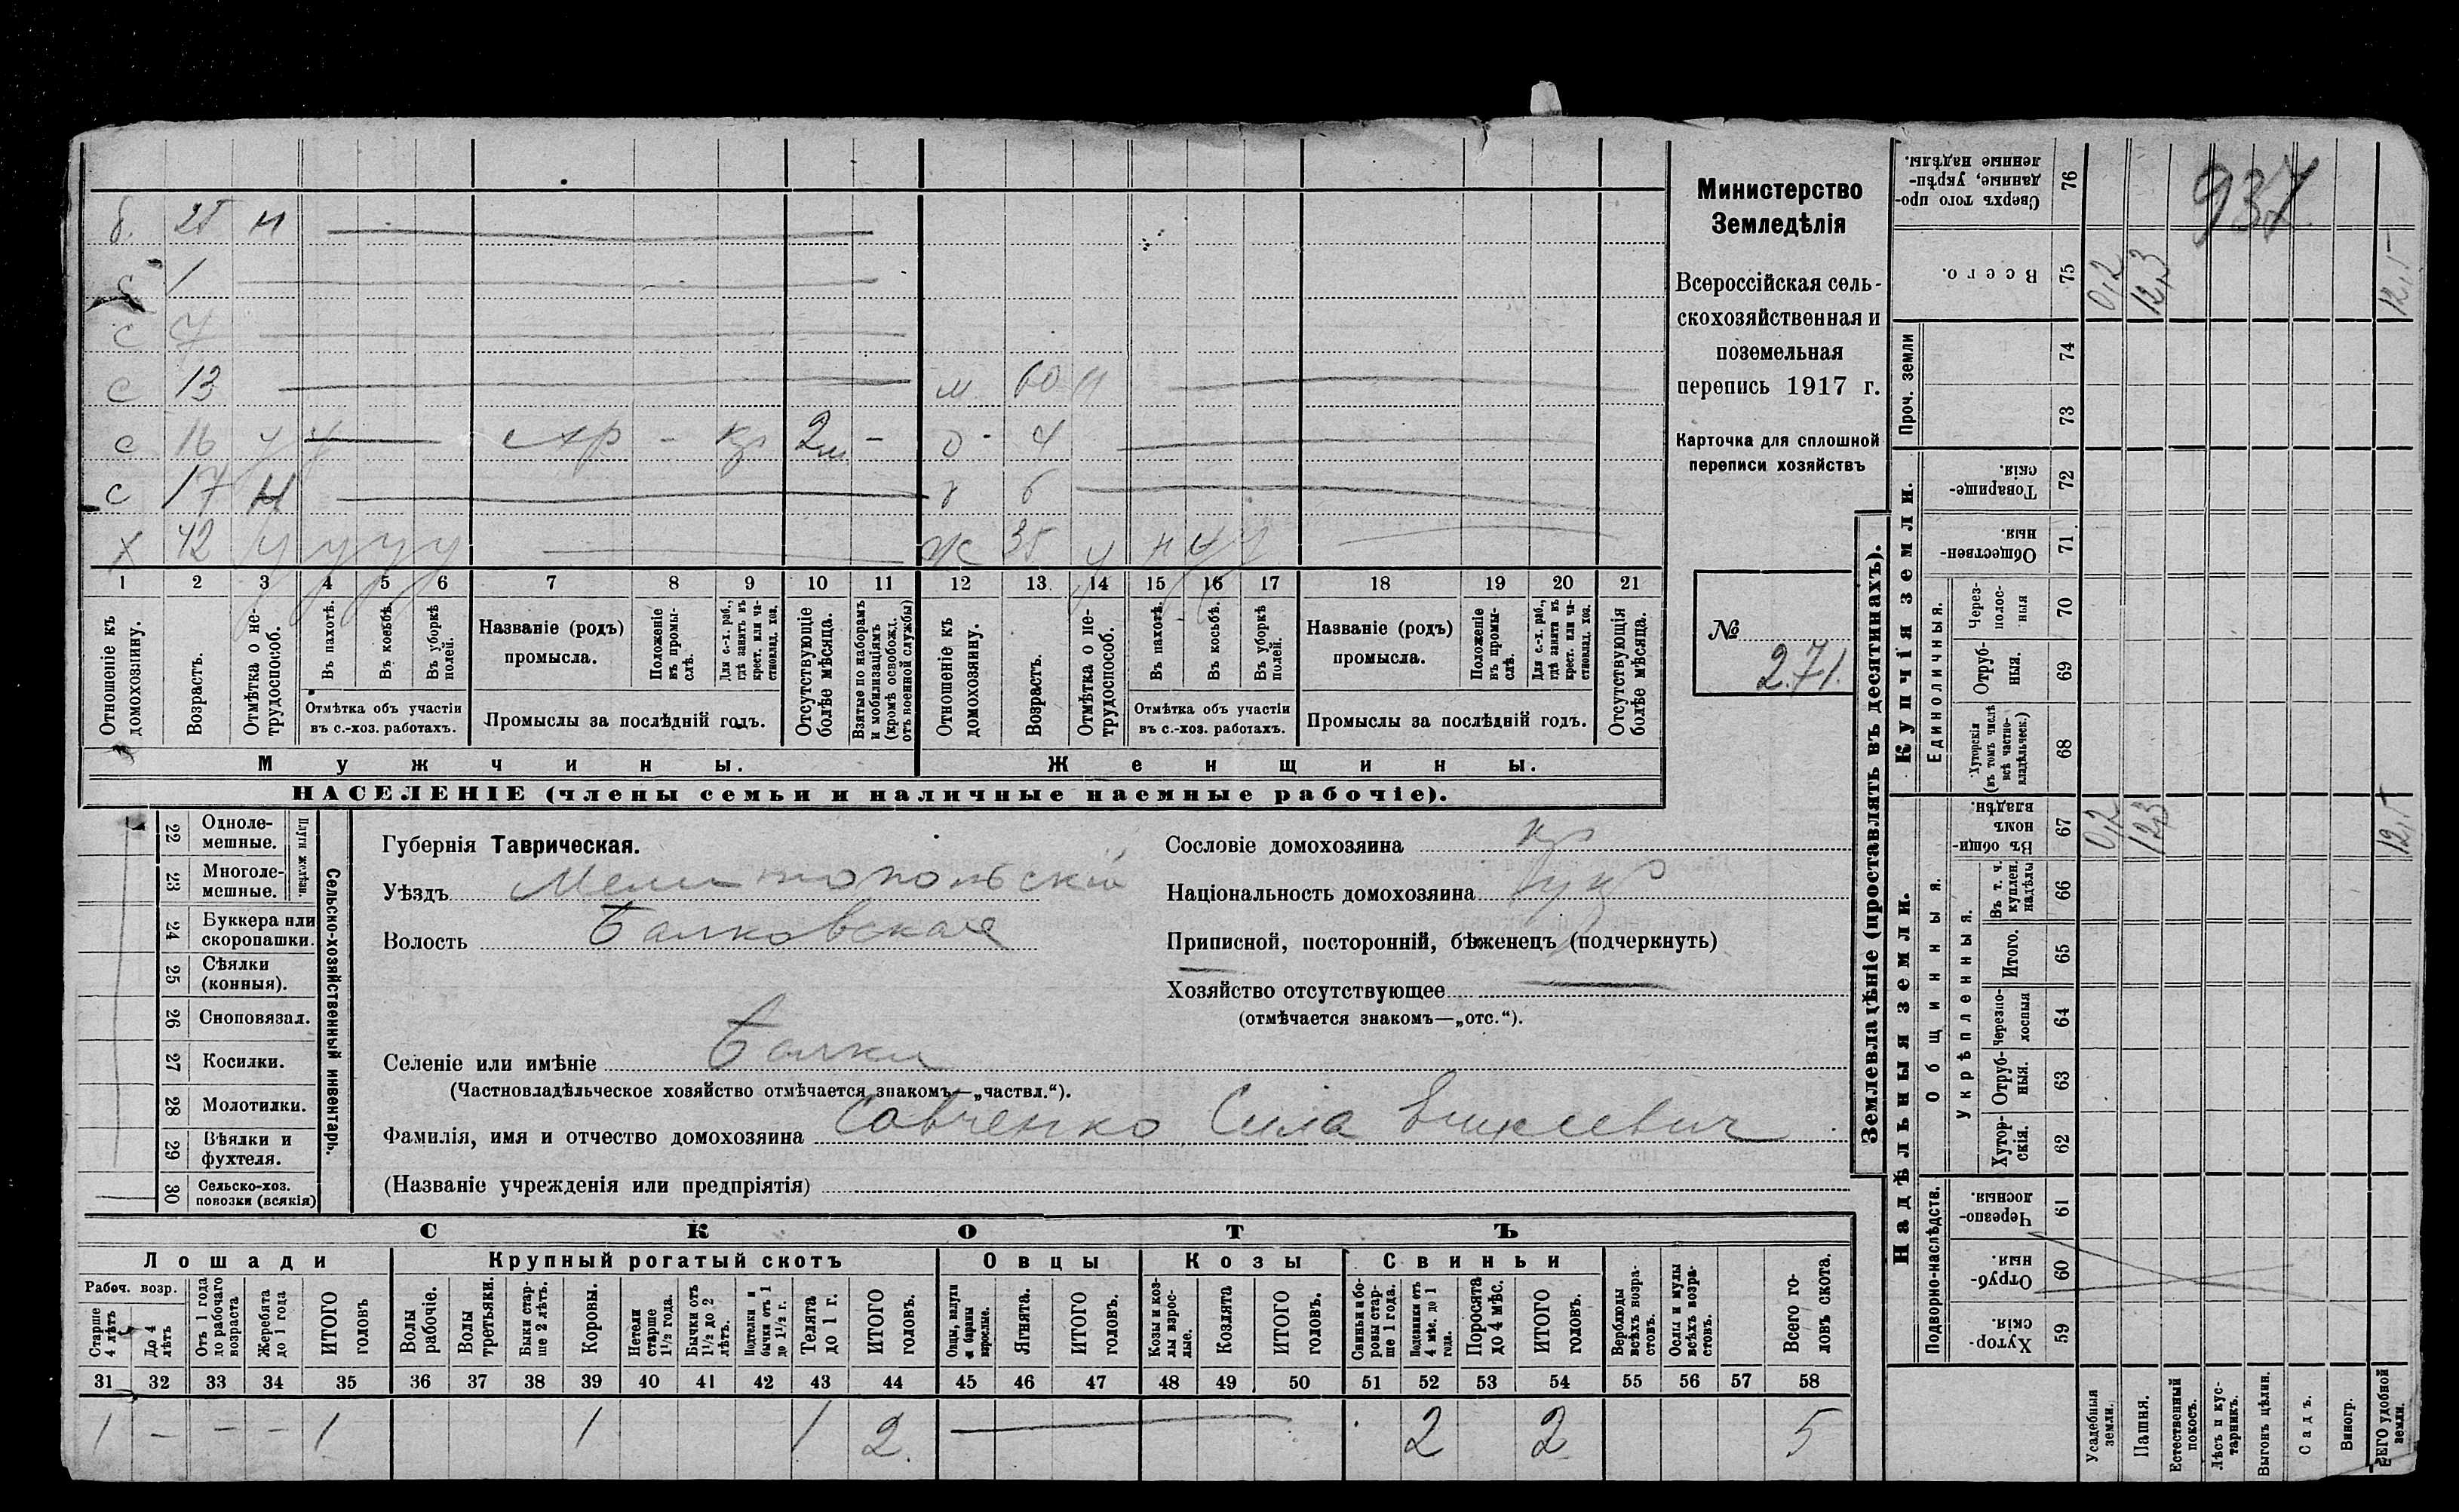 б. 25 н
с 1
с 7
с 13 м 60 н
с 16 у у схр - кр 2м - д 4
с 17 н д 6
х 42 у у у у ж 35 у н у у
1 2 3 4 5 6 7 8 9 10 11 12 13 14 15 16 17 18 19 20 21
Отношеніе къ домохозяину.
Возрастъ.
Отмѣтка о не-
трудоспособ.
Въ пахотѣ.
Въ косьбѣ.
Въ уборкѣ полей.
Отмѣтка объ участіи
въ с.-хоз. работахъ.
Названіе (родъ)
промысла.
Положеніе
въ промы-
слѣ.
Для с.-х. раб.,
гдѣ занятъ въ
крест. или ча-
стновлад. хоз.
Промыслы за послѣдній годъ.
Отсутствующіе
болѣе мѣсяца.
Взятые по наборамъ
и мобилизаціямъ
(кромѣ освобожд.
отъ военной службы)
Отношеніе къ
домохозяину.
Возрастъ.
Отмѣтка о не-
трудоспособ.
Въ пахотѣ.
Въ косьбѣ.
Въ уборкѣ
полей.
Отмѣтка объ участіи
въ с.-хоз. работахъ.
Названіе (родъ)
промысла.
Положеніе
въ промы-
слѣ.
Для с.-х. раб.,
гдѣ занята въ
крест. или ча-
стновлад. хоз.
Промыслы за послѣдній годъ.
Отсутствующія
болѣе мѣсяца.
Мужчины. Женщины.
НАСЕЛЕНІЕ (члены семьи и наличные наемные рабочіе).
Министерство
Земледѣлія
Всероссійская сель-
скохозяйственная и
поземельная
перепись 1917 г.
Карточка для сплошной
переписи хозяйствъ
№
271.
22 Одноле-
мешные.
23 Многоле-
мешные.
Плуги желѣзн.
24 Буккера или
скоропашки.
25 Сѣялки
(конныя).
26 Сноповязал.
27 Косилки.
28 Молотилки.
29 Вѣялки и
фухтеля.
30 Сельско-хоз.
повозки (всякія)
Сельско-хозяйственный инвентарь.
Губернія Таврическая.
Уѣздъ Мелитопольскій
Волость Балковская
Селеніе или имѣніе Балки
(Частновладѣльческое хозяйство отмѣчается знакомъ—„частвл.“).
Фамилія, имя и отчество домохозяина Савченко Сила
(Названіе учрежденія или предпріятія)
Сословіе домохозяина кр
Національность домохозяина укр
Приписной, посторонній, бѣженецъ (подчеркнуть)
Хозяйство отсутствующее
(отмѣчается знакомъ—„отс.“).
СКОТЪ
Лошади Крупный рогатый скотъ Овцы Козы Свиньи
Рабоч. возр.
Старше
4 лѣтъ
До 4
лѣтъ
Отъ 1 года
до рабочаго
возраста
Жеребята
до 1 года
ИТОГО
головъ
Волы
рабочіе.
Волы
третьяки.
Быки стар-
ше 2 лѣтъ.
Коровы.
Нетели
старше
1½ года.
Бычки отъ
1½ до 2
лѣтъ.
Подтелки и
бычки отъ 1
до 1½ г.
Телята
до 1 г.
ИТОГО
головъ.
Овцы, валухи
и бараны
взрослые.
Ягнята.
ИТОГО
головъ.
Козы и коз-
лы взрос-
лые.
Козлята
ИТОГО
головъ.
Свиньи и бо-
ровы стар-
ше 1 года.
Подсвинки отъ
4 мѣс. до 1
года.
Поросята
до 4 мѣс.
ИТОГО
головъ.
Верблюды
всѣхъ возра-
стовъ.
Ослы и мулы
всѣхъ возра-
стовъ.
Всего го-
ловъ скота.
31 32 33 34 35 36 37 38 39 40 41 42 43 44 45 46 47 48 49 50 51 52 53 54 55 56 57 58
1 — - - 1 1 1 2. 2 2 5
Землевладѣніе (проставлять въ десятинахъ).
Сверхъ того про-
данные, укрѣп-
ленные надѣлы.
76
937
Всего.
75 0,2 12,3 12,5
Проч. земли
74
73
Купчія земли.
Товарище-
скія.
72
Обществен-
ныя
71
Единоличныя.
Через-
полос-
ныя
70
Отруб-
ныя.
69
Хуторскія
(въ томъ числѣ
всѣ частно-
владѣльческ.)
68
Надѣльныя земли.
Общинныя.
Въ общи-
номъ
владѣн.
67 0,2 12,3 12,5
Укрѣпленныя.
Въ т. ч.
куплен.
надѣлы
66
Итого.
65
Черезпо-
лосныя
64
Отруб-
ныя.
63
Хутор-
скія.
62
Подворно-наслѣдств.
Черезпо-
лосныя.
61
Отруб-
ныя.
60
Хутор-
скія.
59
Усадебныя
земли.
Пашня.
Естественный
покосъ.
Лѣсъ и кус-
тарникъ.
Выгонъ цѣлин.
Садъ.
Виногр.
ВСЕГО удобной
земли.